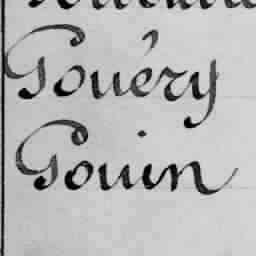 Pouéry
Pouin